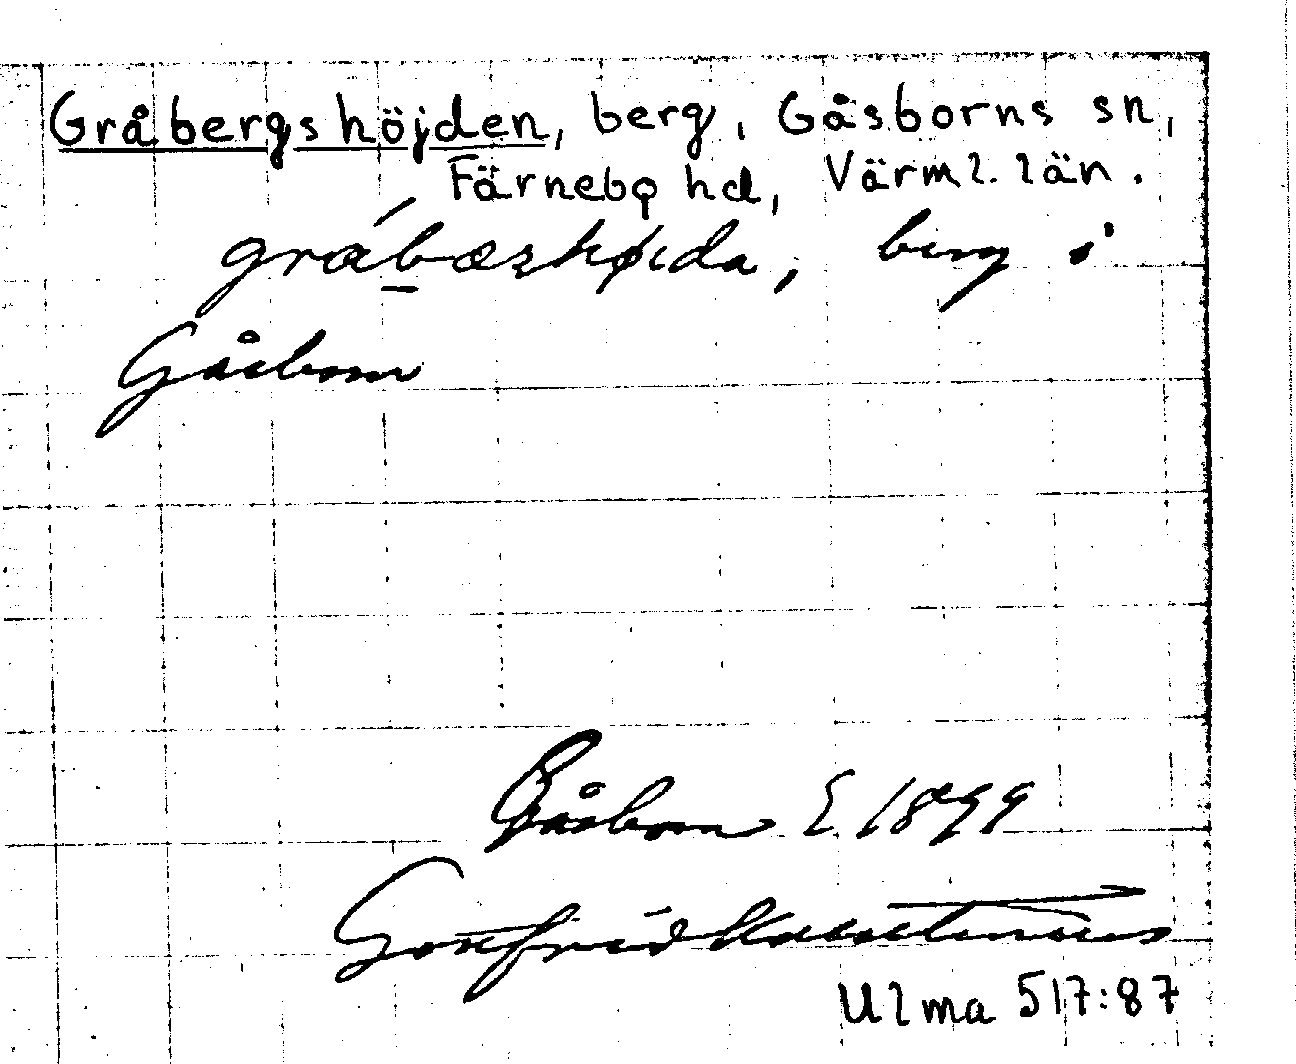 Gråbergshöjden, berg, Gåsborns sn,
Färnebo hd, Värml. län.
berg i
Gåsborn
Gåsborn 1899
Gottfrid Kallstenius
Ulma 517:87